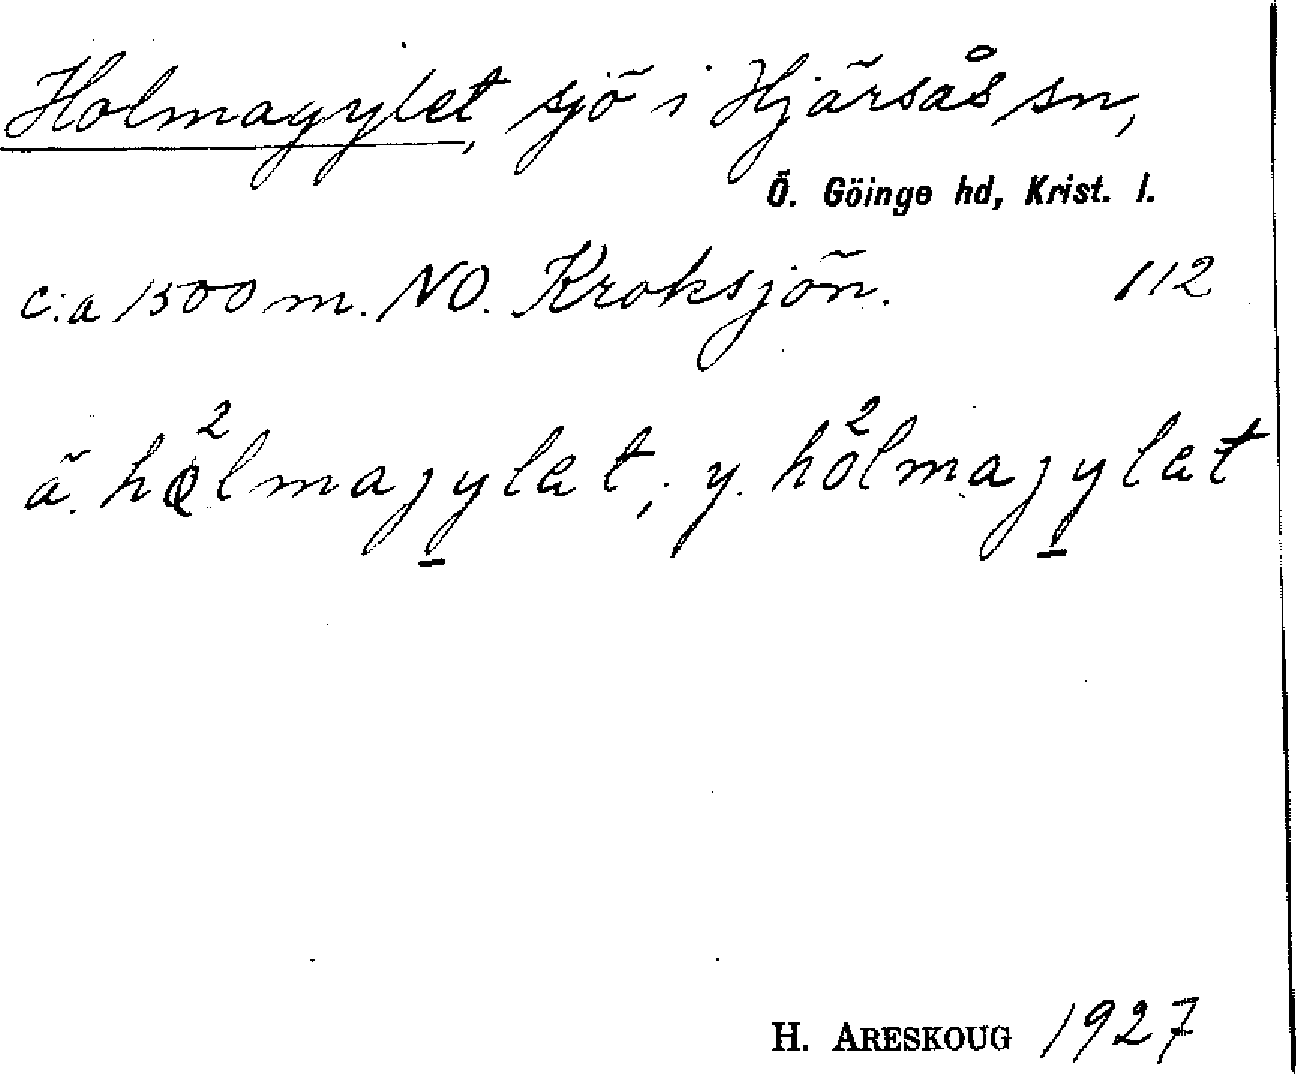 Holmagylet, sjö i Hjärsås sn,
Ö. Göinge hd, Krist. l.
c:a 1500 m. NO. Kroksjön. 112
ä. hǫ²lmagylet; y. hå²lmagylet
H. ARESKOUG 1927